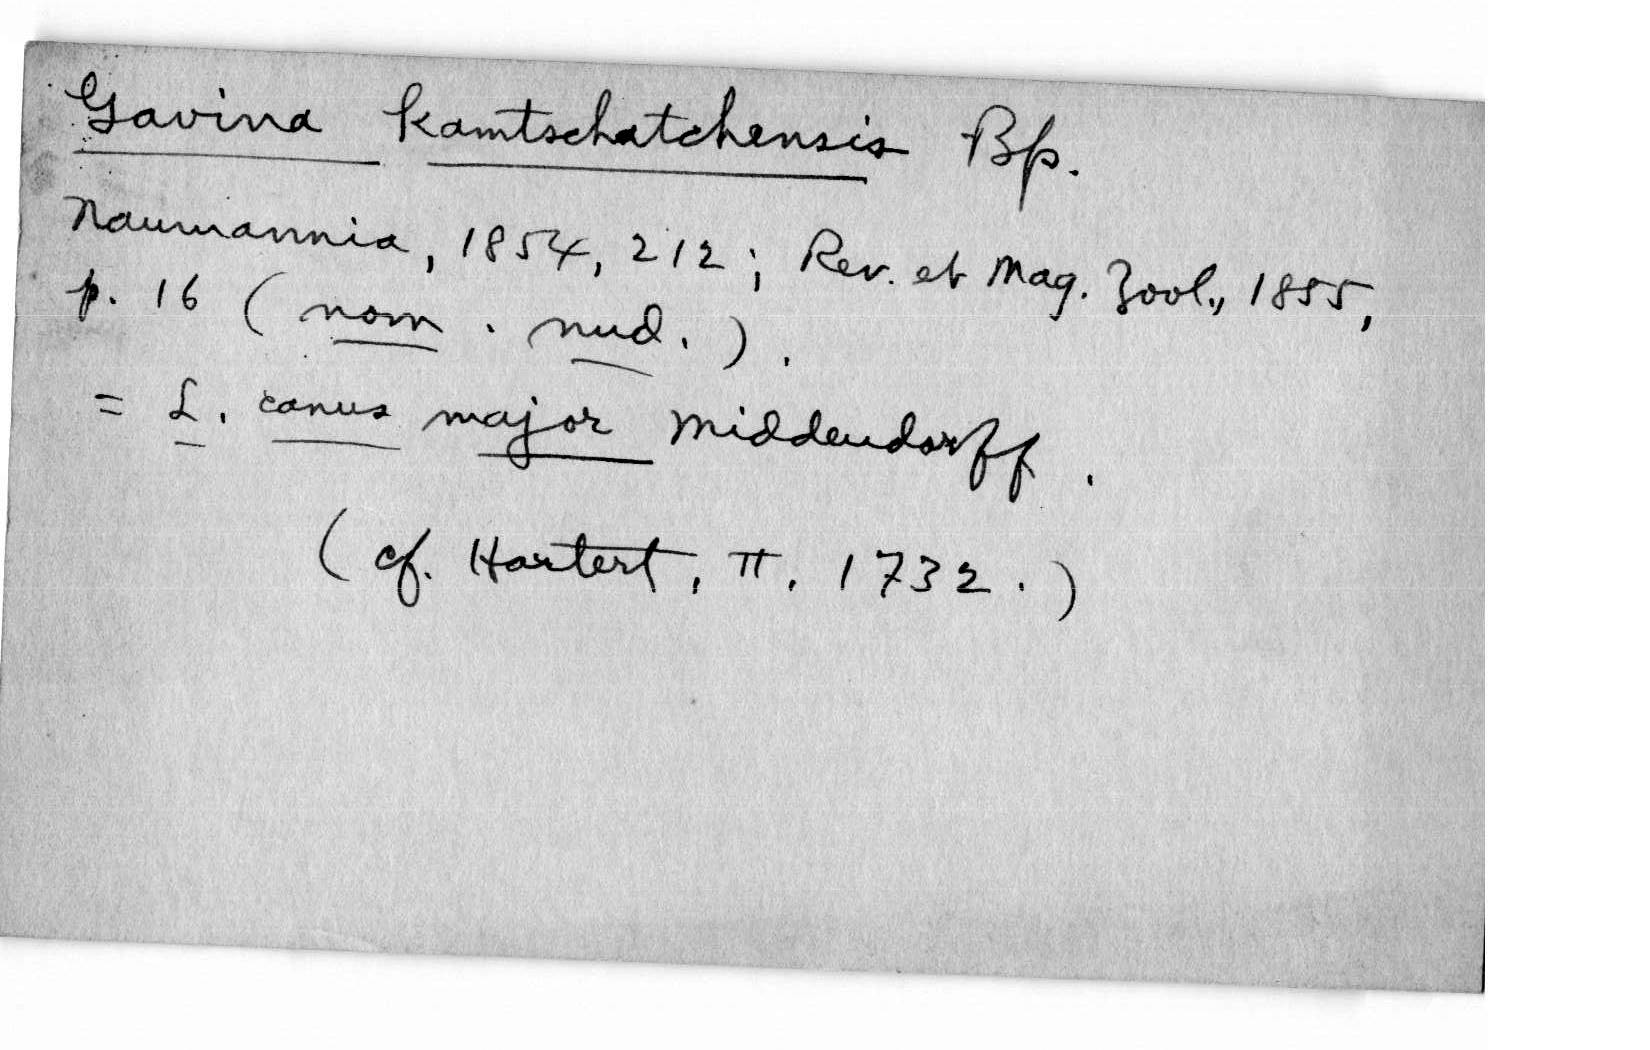 Gavina kamtschatchensis Bp.
Naumannia, 1854, 212; Rev. et Mag. Zool., 1855,
p. 16 (nom. nud.).
= L. canus major Middendorff.
(cf. Hartert, II. 1732.)